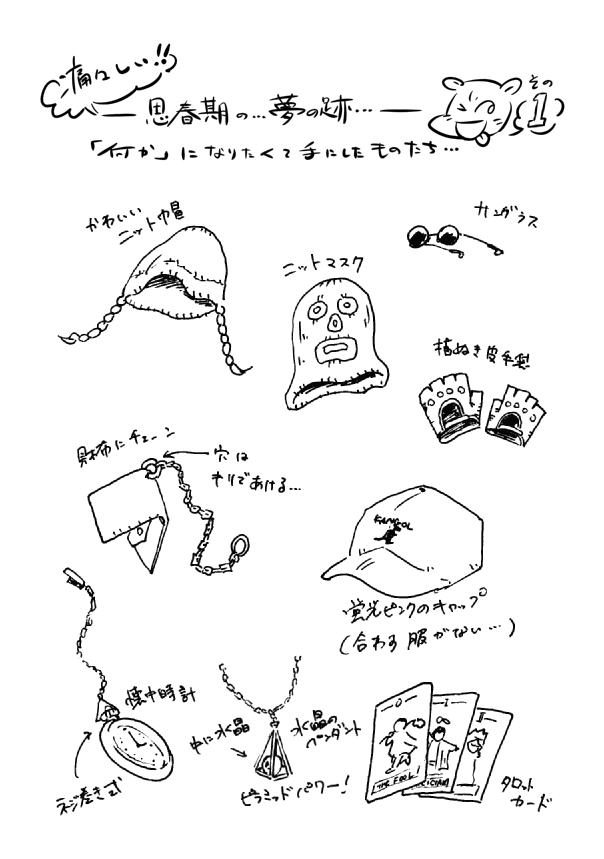 痛々しい!!
思春期の…夢の跡…
その1
「何か」になりたくて手にしたものたち…
かわいい
ニット帽
ニットマスク
サングラス
指ぬき皮手袋
財布にチェーン
穴は
キリであける…
KANGOL
蛍光ピンクのキャップ
(合わす服がない…)
懐中時計
ネジ巻き式
中に水晶
水晶の
ペンダント
ピラミッドパワー!
O
THE FOOL
I
MAGICIAN
II
タロット
カード